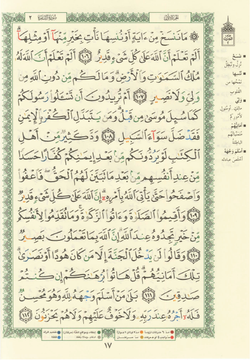 مَا نَنسَخْ مِنْ ءَايَةٍ أَوْ نُنسِهَا نَأْتِ بِخَيْرٍ مِّنْهَا أَوْ مِثْلِهَا
أَلَمْ تَعْلَمْ أَنَّ ٱللَّهَ عَلَىٰ كُلِّ شَىْءٍ قَدِيرٌ ١٠٦ أَلَمْ تَعْلَمْ أَنَّ ٱللَّهَ لَهُۥ
مُلْكُ ٱلسَّمَٰوَٰتِ وَٱلْأَرْضِ وَمَا لَكُم مِّن دُونِ ٱللَّهِ مِن
وَلِىٍّ وَلَا نَصِيرٍ ١٠٧ أَمْ تُرِيدُونَ أَن تَسْـَٔلُوا۟ رَسُولَكُمْ
كَمَا سُئِلَ مُوسَىٰ مِن قَبْلُ وَمَن يَتَبَدَّلِ ٱلْكُفْرَ بِٱلْإِيمَٰنِ
فَقَدْ ضَلَّ سَوَآءَ ٱلسَّبِيلِ ١٠٨ وَدَّ كَثِيرٌ مِّنْ أَهْلِ
ٱلْكِتَٰبِ لَوْ يَرُدُّونَكُم مِّنۢ بَعْدِ إِيمَٰنِكُمْ كُفَّارًا حَسَدًا
مِّنْ عِندِ أَنفُسِهِم مِّنۢ بَعْدِ مَا تَبَيَّنَ لَهُمُ ٱلْحَقُّ فَٱعْفُوا۟
وَٱصْفَحُوا۟ حَتَّىٰ يَأْتِىَ ٱللَّهُ بِأَمْرِهِۦٓ إِنَّ ٱللَّهَ عَلَىٰ كُلِّ شَىْءٍ قَدِيرٌ
١٠٩ وَأَقِيمُوا۟ ٱلصَّلَوٰةَ وَءَاتُوا۟ ٱلزَّكَوٰةَ وَمَا تُقَدِّمُوا۟ لِأَنفُسِكُم
مِّنْ خَيْرٍ تَجِدُوهُ عِندَ ٱللَّهِ إِنَّ ٱللَّهَ بِمَا تَعْمَلُونَ بَصِيرٌ
١١٠ وَقَالُوا۟ لَن يَدْخُلَ ٱلْجَنَّةَ إِلَّا مَن كَانَ هُودًا أَوْ نَصَٰرَىٰ
تِلْكَ أَمَانِيُّهُمْ قُلْ هَاتُوا۟ بُرْهَٰنَكُمْ إِن كُنتُمْ
صَٰدِقِينَ ١١١ بَلَىٰ مَنْ أَسْلَمَ وَجْهَهُۥ لِلَّهِ وَهُوَ مُحْسِنٌ
فَلَهُۥٓ أَجْرُهُۥ عِندَ رَبِّهِۦ وَلَا خَوْفٌ عَلَيْهِمْ وَلَا هُمْ يَحْزَنُونَ ١١٢
١٧